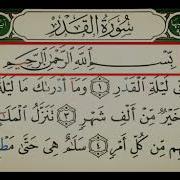 سُورَةُ القَدْرِ
بِسْمِ اللَّهِ الرَّحْمَٰنِ الرَّحِيمِ
لَيْلَةِ الْقَدْرِ ١ وَمَا أَدْرَىٰكَ مَا لَيْلَةُ
خَيْرٌ مِّنْ أَلْفِ شَهْرٍ ٣ تَنَزَّلُ
مِّن كُلِّ أَمْرٍ ٤ سَلَٰمٌ هِىَ حَتَّىٰ